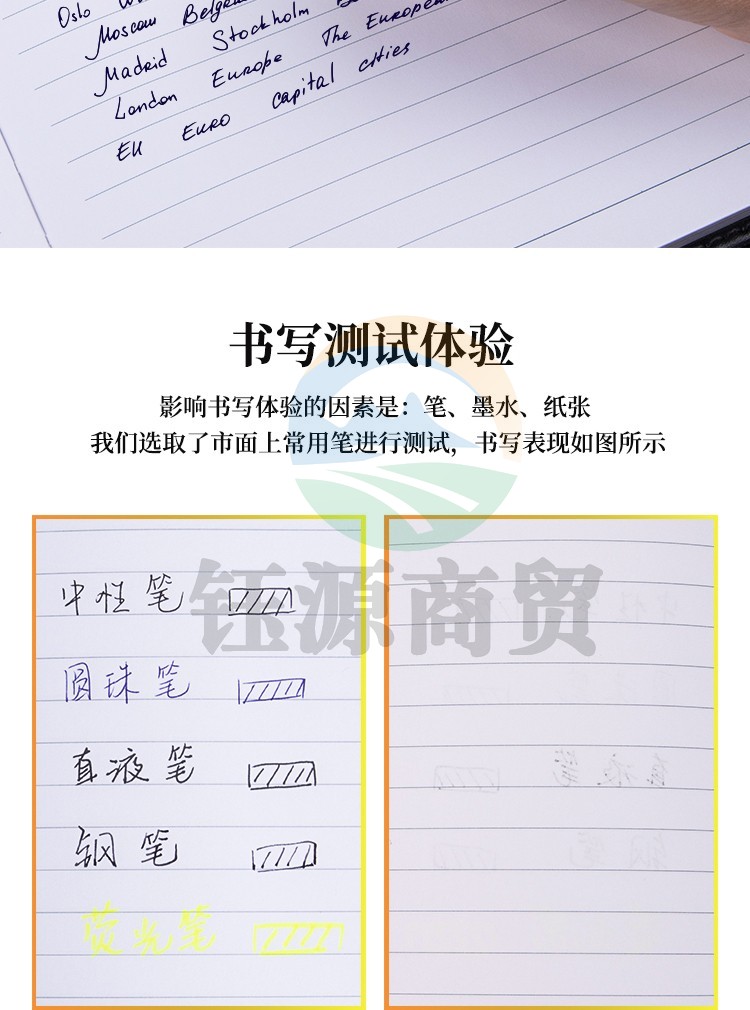 Oslo
Moscow Belgra
Madrid Stockholm
London Europe The European
EU EURO capital cities
书写测试体验
影响书写体验的因素是：笔、墨水、纸张
我们选取了市面上常用笔进行测试，书写表现如图所示
钰源商贸
中性笔
圆珠笔
直液笔
钢笔
荧光笔